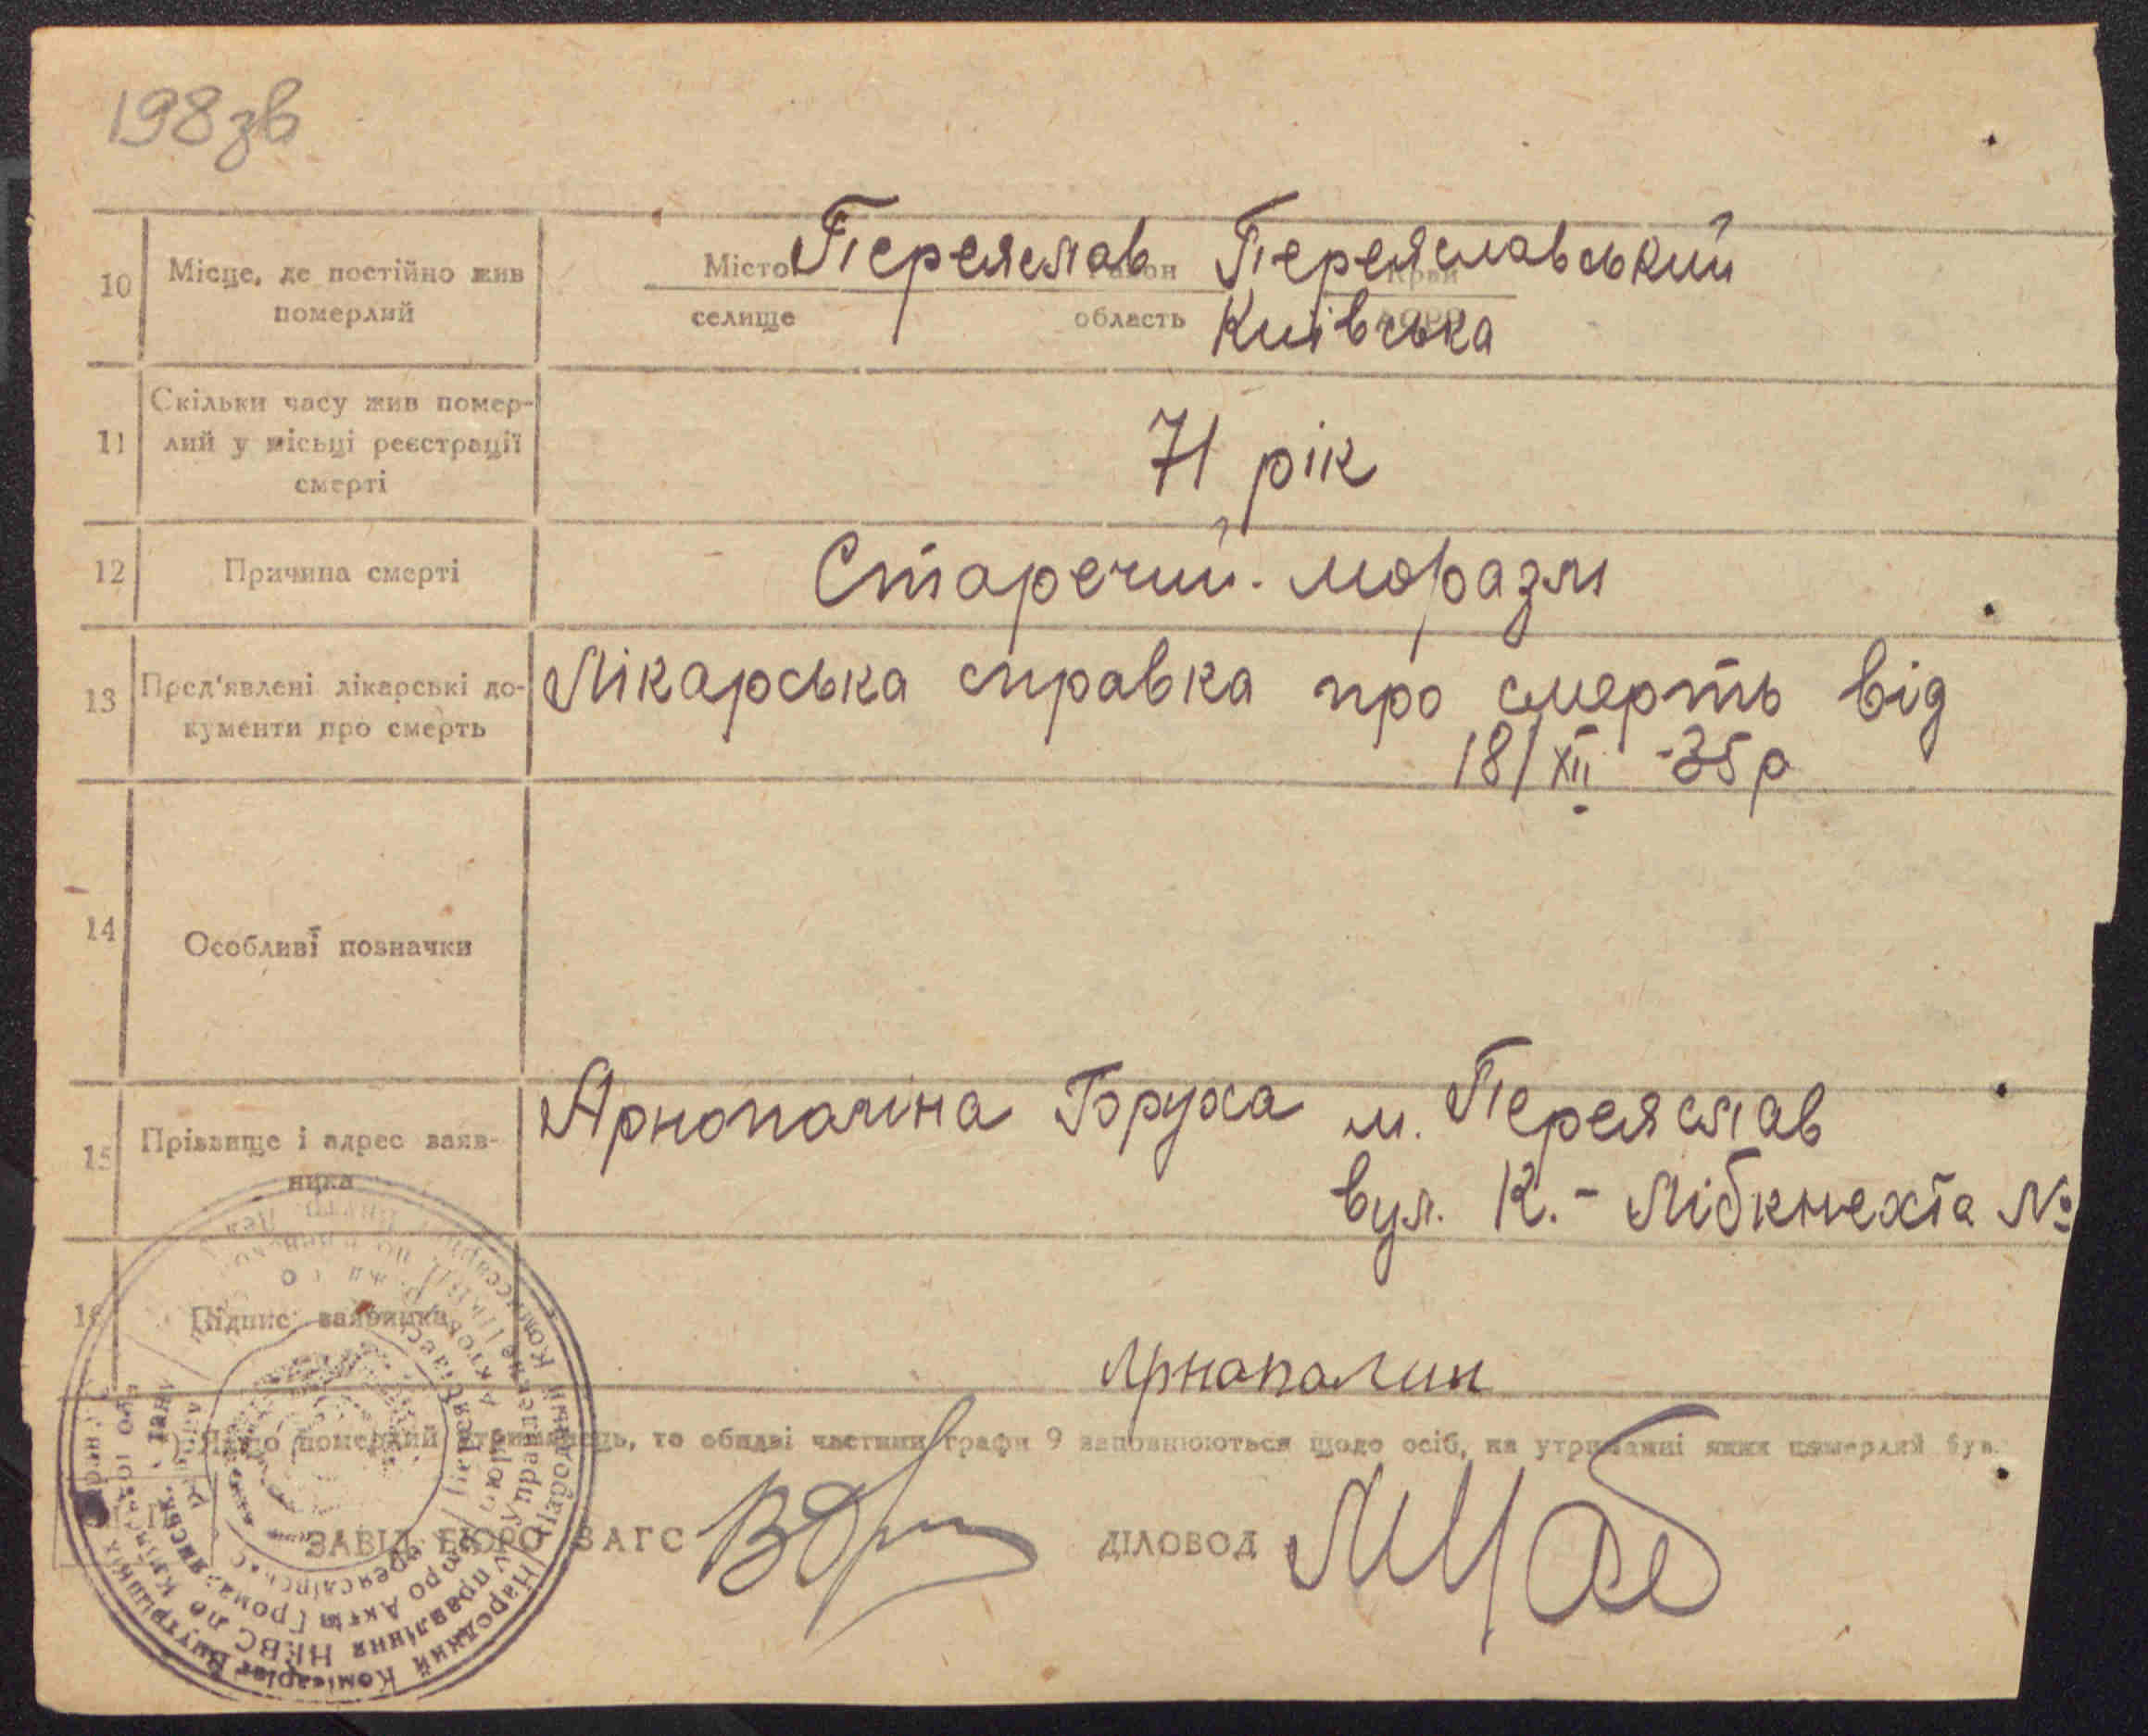 198зв
10 Місце, де постійно жив померлий
Місто Переяслав район Переяславський Край
селище область Київська АСРР
11 Скільки часу жив помер-
лий у місьці реєстрації
смерті
71 рік
12 Причина смерті Старечий. моразм
13 Пред'явлені лікарські до-
кументи про смерть
Лікарська справка про смерть від
18/XII -35 р
14 Особливі позначки
15 Прізвище і адрес заяв-
ника
Арнополіна Борука м. Переяслав
вул. К. - Лібкнехта №
16 Підпис заявника
Арнополин
Якщо померлий утриманець, то обидві частини графи 9 заповнюються щодо осіб, на утриманні яких памерлий був.
ЗАВІД. БЮРО ЗАГС ДІЛОВОД
Народний Комісаріат Внутрішніх
Управління НКВС по Київській обл
Бюро Актів Громадянськ. Стану